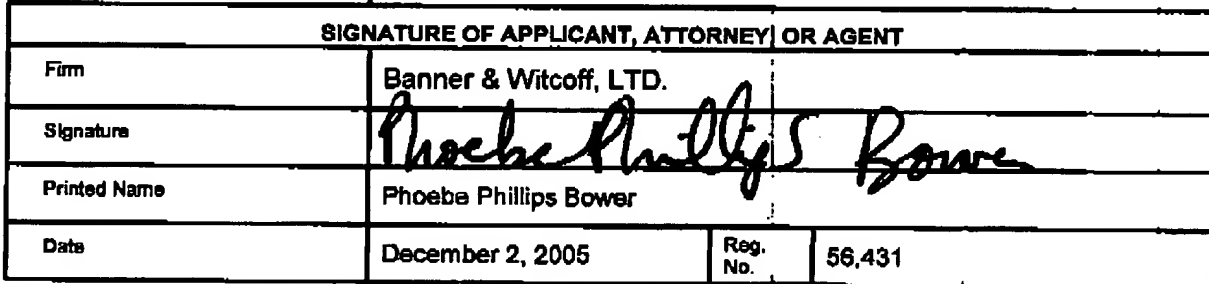 SIGNATURE OF APPLICANT, ATTORNEY, OR AGENT
Firm Banner & Witcoff, LTD.
Signature Phoebe Phillips Bower
Printed Name Phoebe Phillips Bower
Date December 2, 2005 Reg. No. 56,431